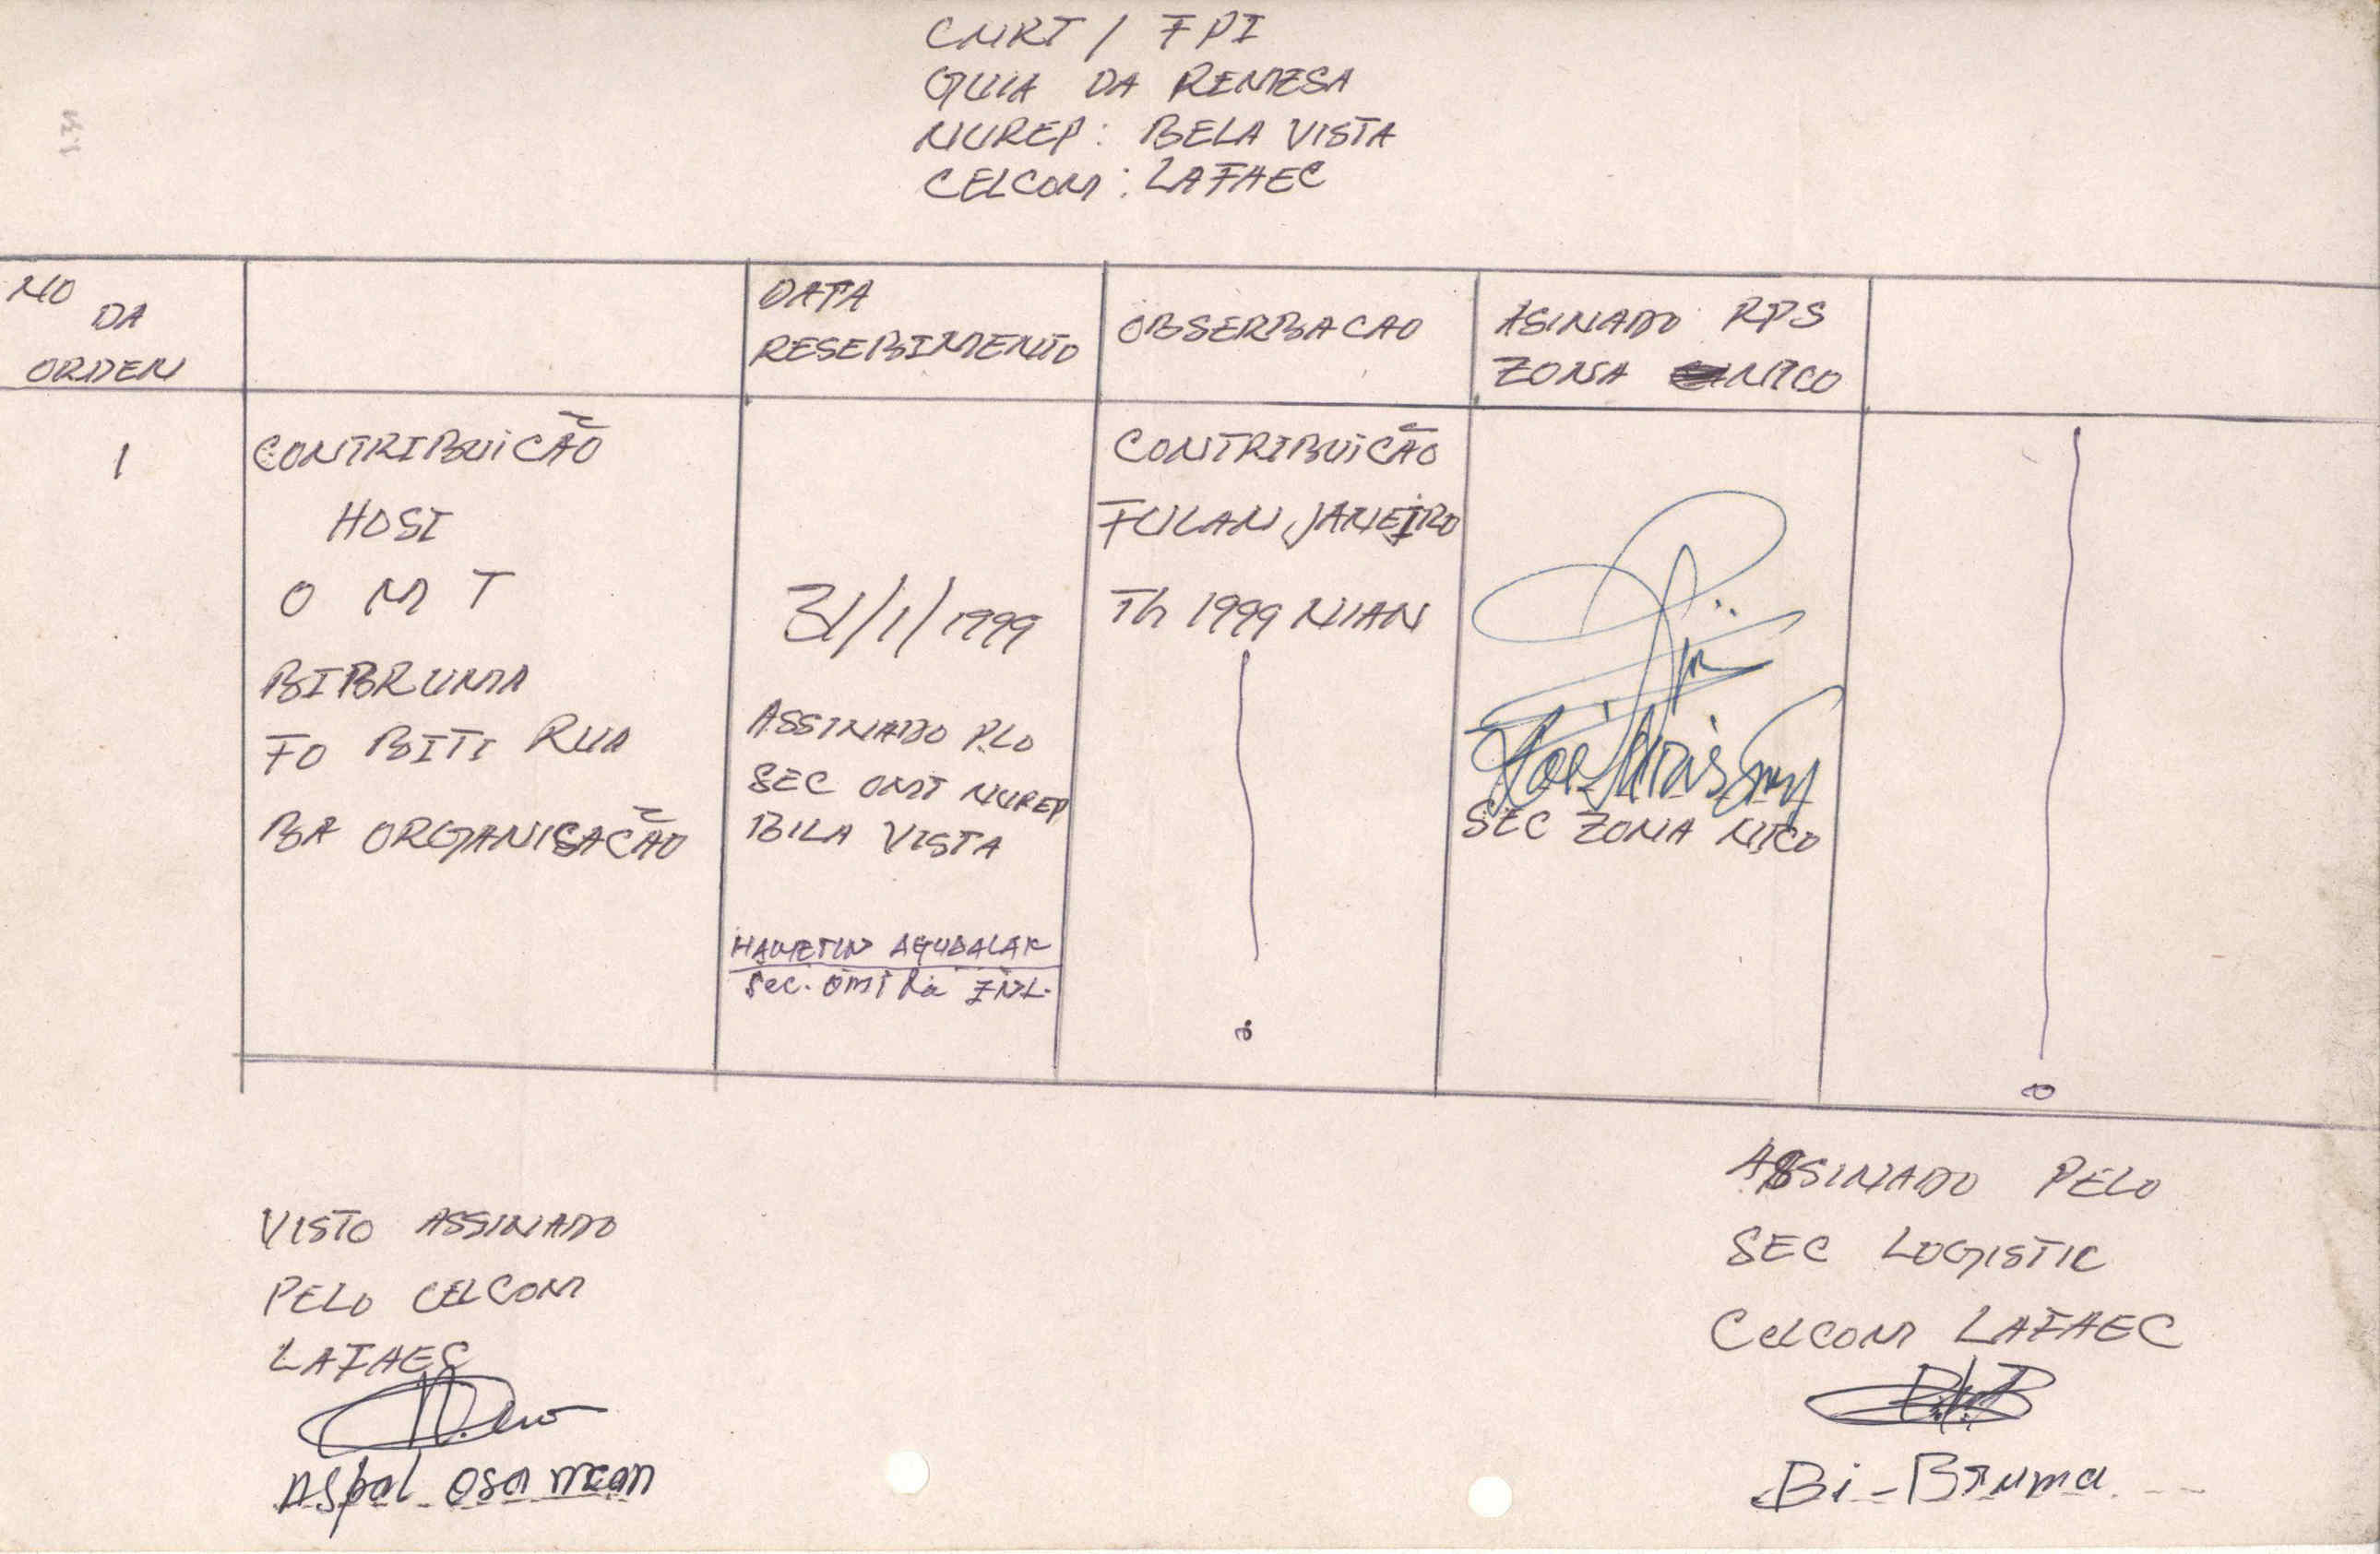 CNRT / FPI
GUIA DA REMESA
NUREP: BELA VISTA
CELCOM: LAFAEC
1.31
NO
DA
ORDEN
DATA
RESEBIMENTO
OBSERBACAO
ASINADO RPS
ZONA NICO
1
CONTRIBUICÃO
HOSI
O M T
BIBRUMA
FO BITI RUA
BA ORGANISACÃO
31/1/1999
ASSINADO PLO
SEC OMT NUREP
BILA VISTA
HAUMETIN AGUDALAK
Sec. OMT
CONTRIBUICÃO
FULAN JANEIRO
Th 1999 NIAN
SEC ZONA NICO
VISTO ASSINADO
PELO CELCOM
LAFAEC
Aspal Osa mean
ASSINADO PELO
SEC LOGISTIC
CELCOM LAFAEC
Bi-Bruma